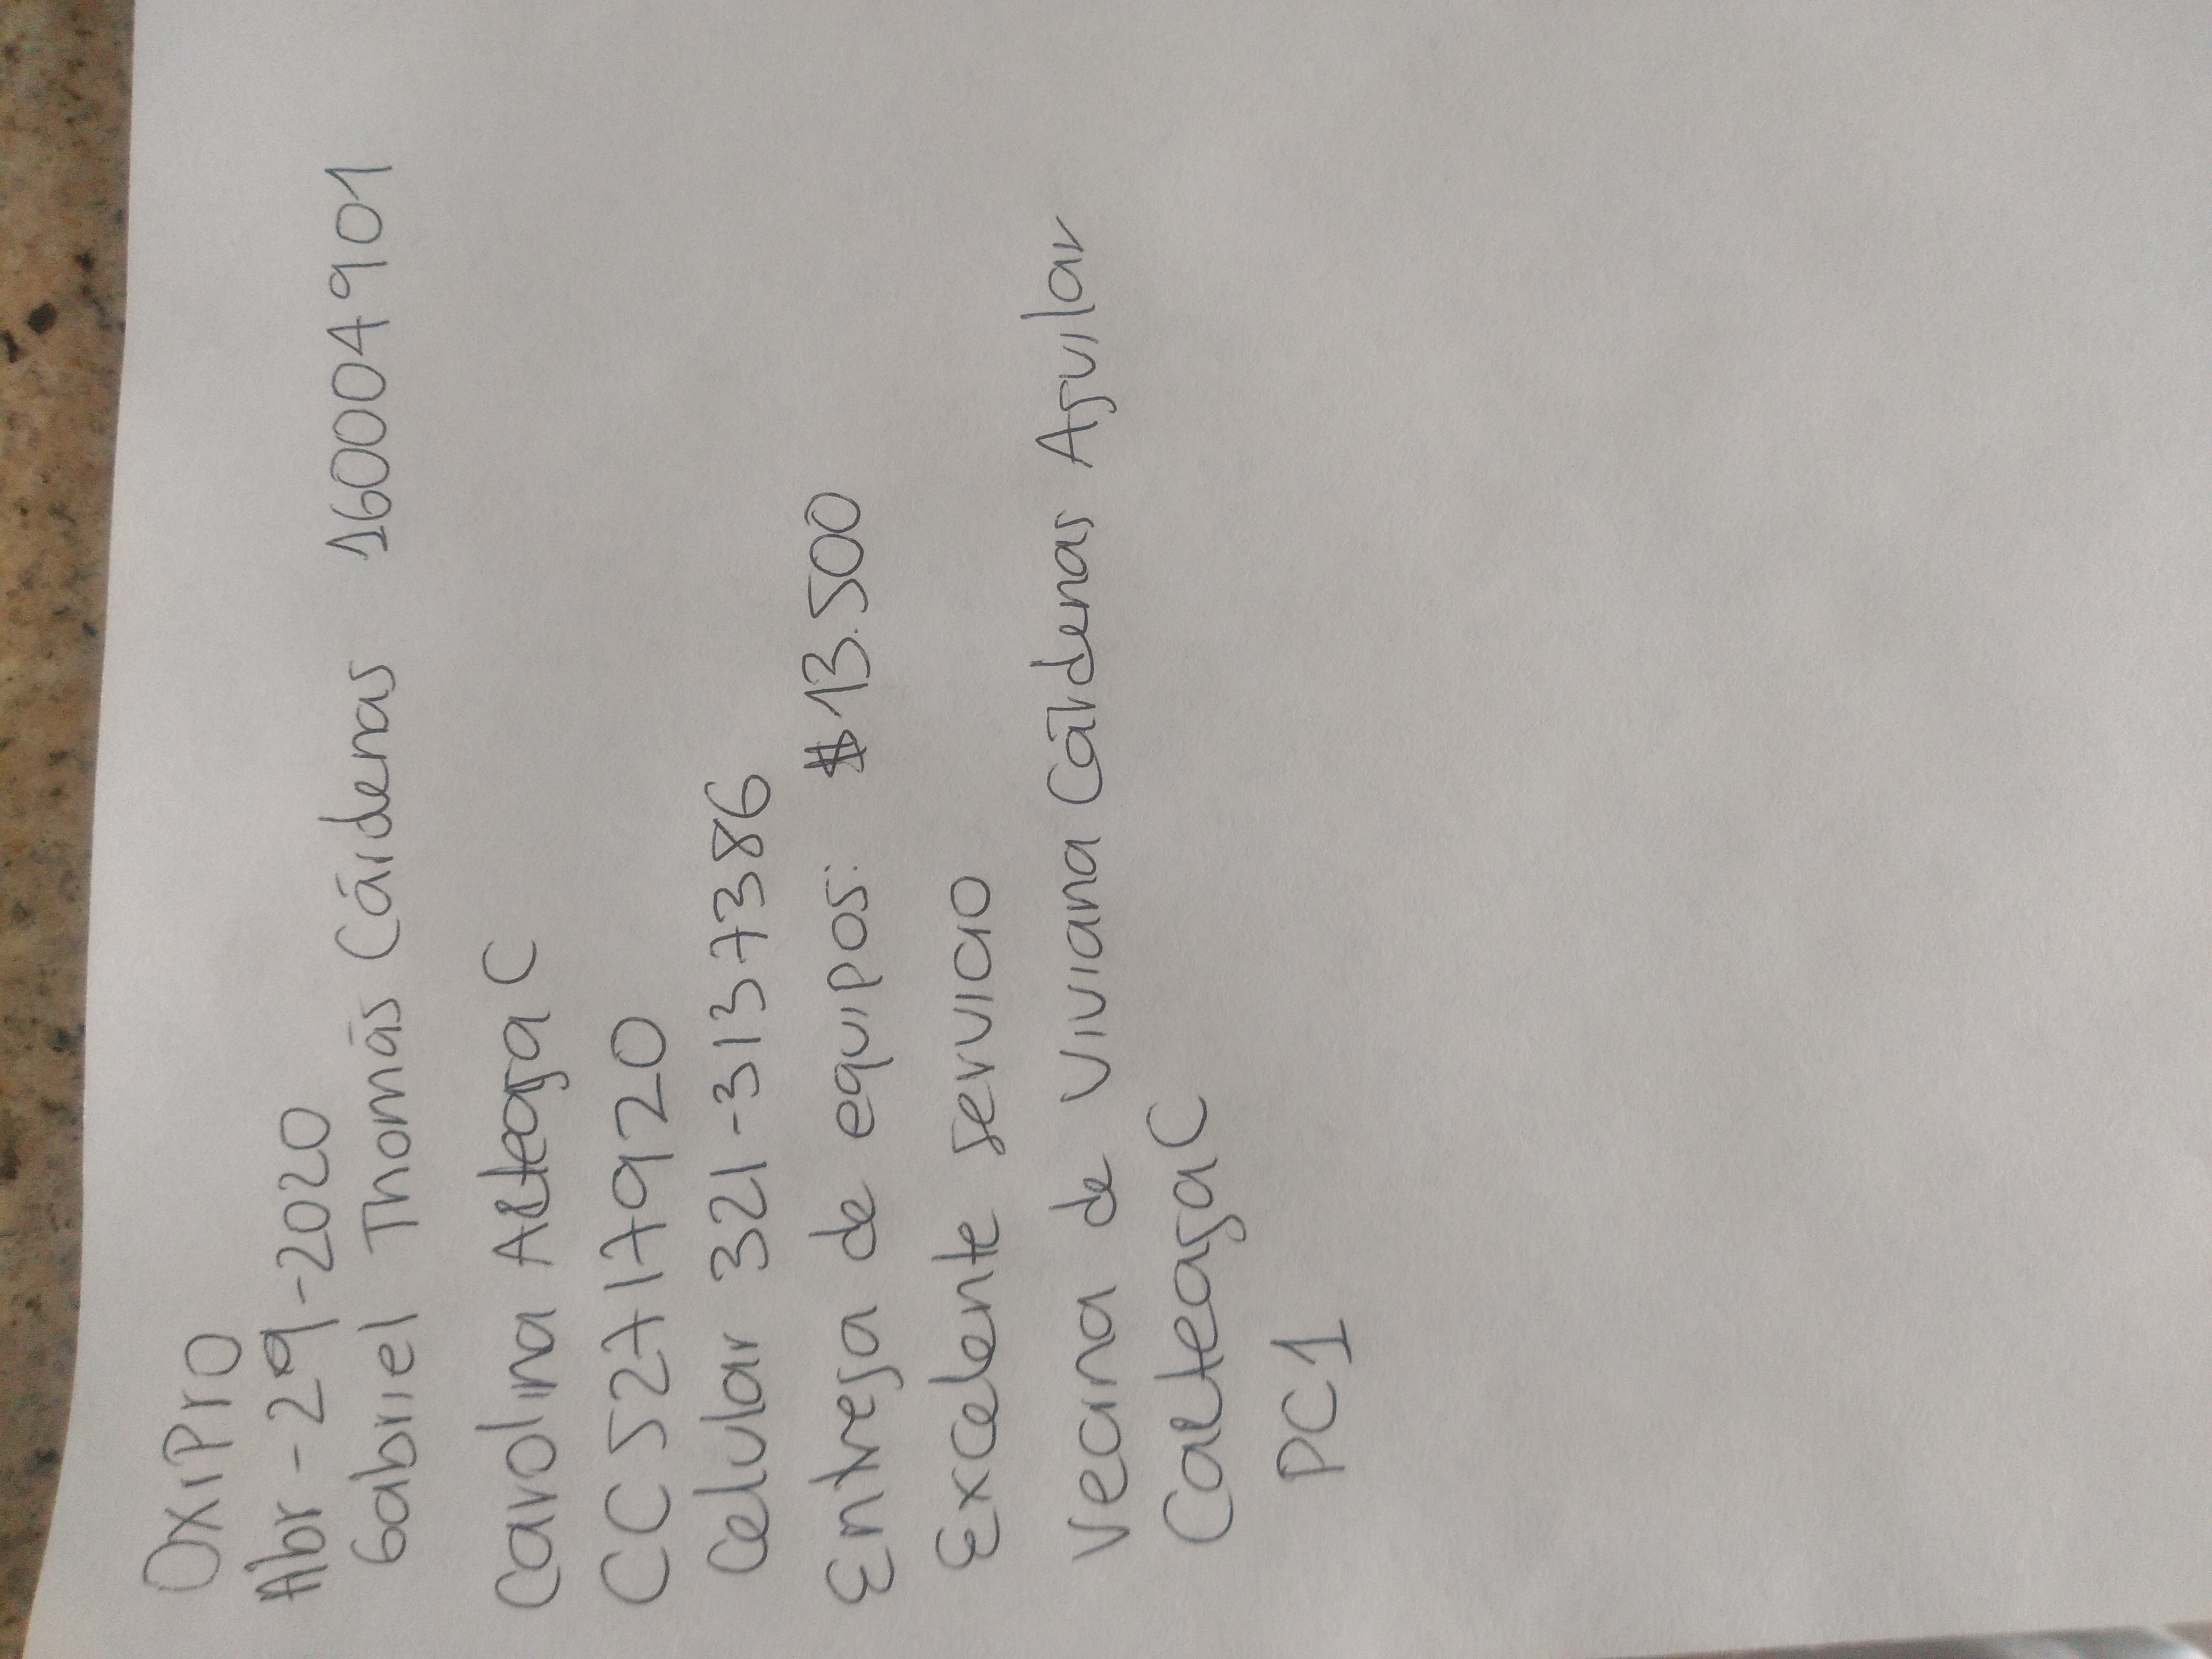 OxiPro
Abr-29-2020
Gabriel Thomás Cárdenas 160004901
Carolina Arteaga C
CC52717920
Celular 321-3137386
Entrega de equipos: $13.500
Excelente servicio
Vecina de Viviana Cárdenas Aguilar
CarteagaC
PC1